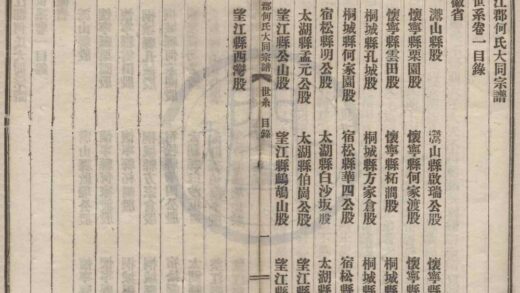 江郡何氏大同宗譜
世系卷一目錄
徽省
灊山縣股 灊山縣啟瑞公股 懷寧縣
懷寧縣栗園股 懷寧縣何家渡股 懷寧縣
懷寧縣雲田股 懷寧縣柘澗股 桐城縣
桐城縣孔城股 桐城縣方家倉股 桐城縣
桐城縣何家園股 宿松縣華四公股 宿松縣
宿松縣明公股 太湖縣白沙坂股 太湖縣
太湖縣孟元公股 太湖縣伯崗公股 望江縣
望江縣公山股 望江縣山股 望江縣
郡何氏大同宗譜 世系 目錄 一
望江縣西灣股